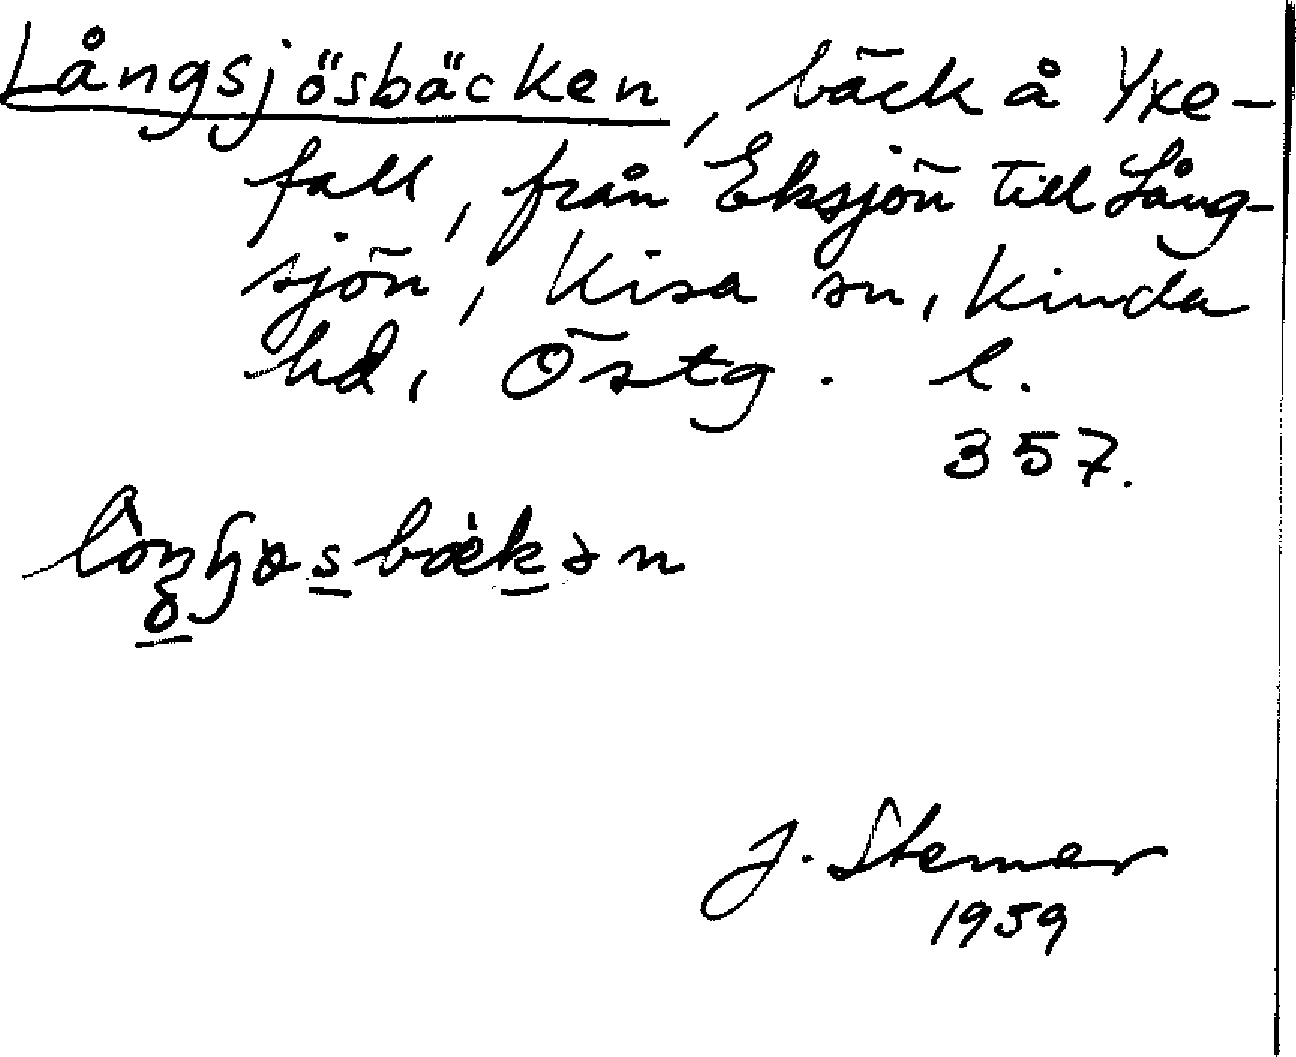 Långsjösbäcken, bäck å Yxe-
fall, från Eksjön till Lång-
sjön, Kisa sn, Kinda
hd, Östg. l.
357.
J.
1959